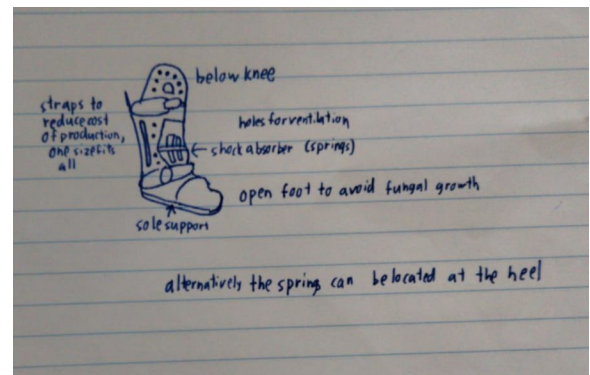 below knee
straps to
reduce cost
of production,
one size fits
all
holes for ventilation
shock absorber (springs)
open foot to avoid fungal growth
sole support
alternatively the spring can be located at the heel